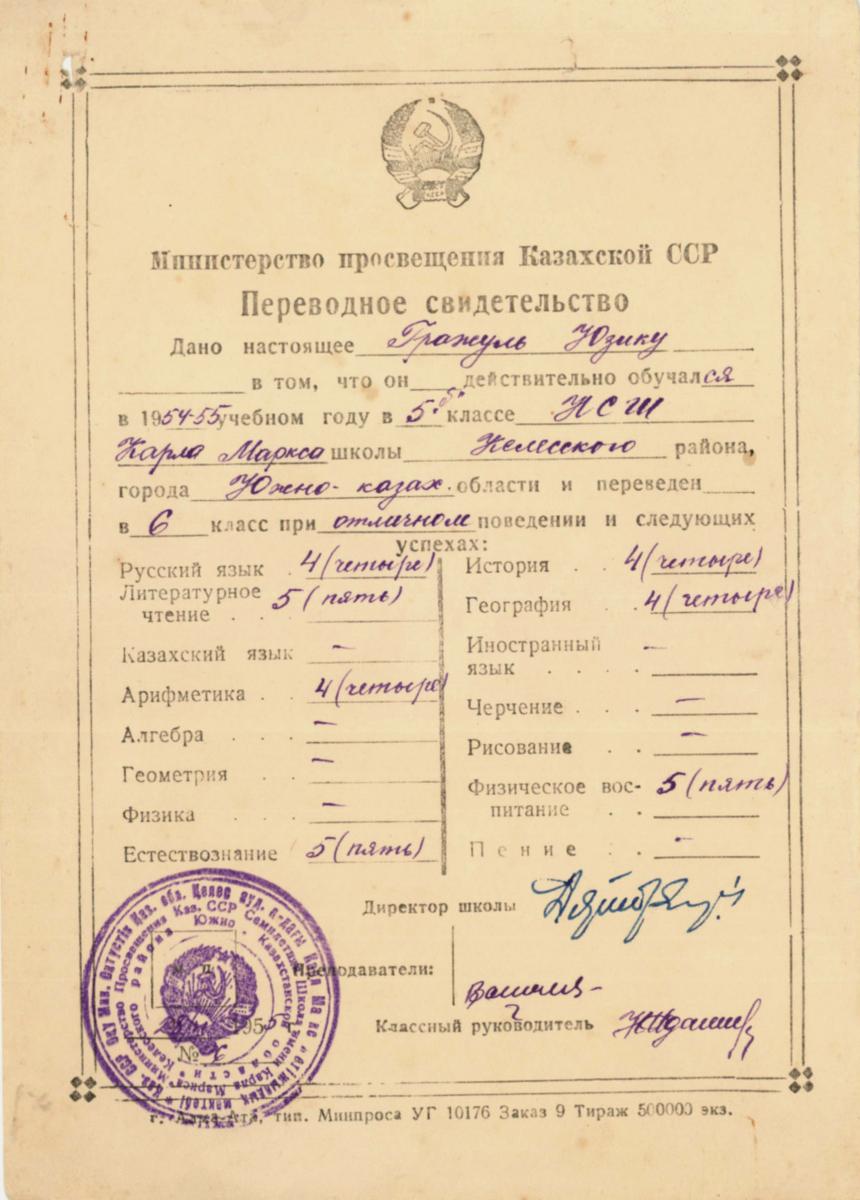 Министерство просвещения Казахской ССР
Переводное свидетельство
Дано настоящее Гражуль Юзику
в том, что он действительно обучался
в 1954-55 учебном году в 5"б" классе НСШ
Карла Маркса школы Келесского района,
города Южно-казах. области и переведен
в 6 класс при отличном поведении и следующих
успехах:
Русский язык . 4 (четыре)
Литературное чтение . . 5 (пять)
Казахский язык –
Арифметика . . 4 (четыре)
Алгебра . . . –
Геометрия . . –
Физика . . –
Естествознание 5 (пять)
История . . 4 (четыре)
География . . 4 (четыре)
Иностранный язык . . . . –
Черчение . . . –
Рисование . . –
Физическое вос-
питание . . 5 (пять)
Пение . . –
Директор школы
М. П. Преподаватели:
1955
Классный руководитель
№
Министерство Просвещения Каз. ССР Семилетняя Школа имени Карла Маркса
Келесского района Южно-Казахстанской области
г. Алма-Ата, тип. Минпроса УГ 10176 Заказ 9 Тираж 500000 экз.